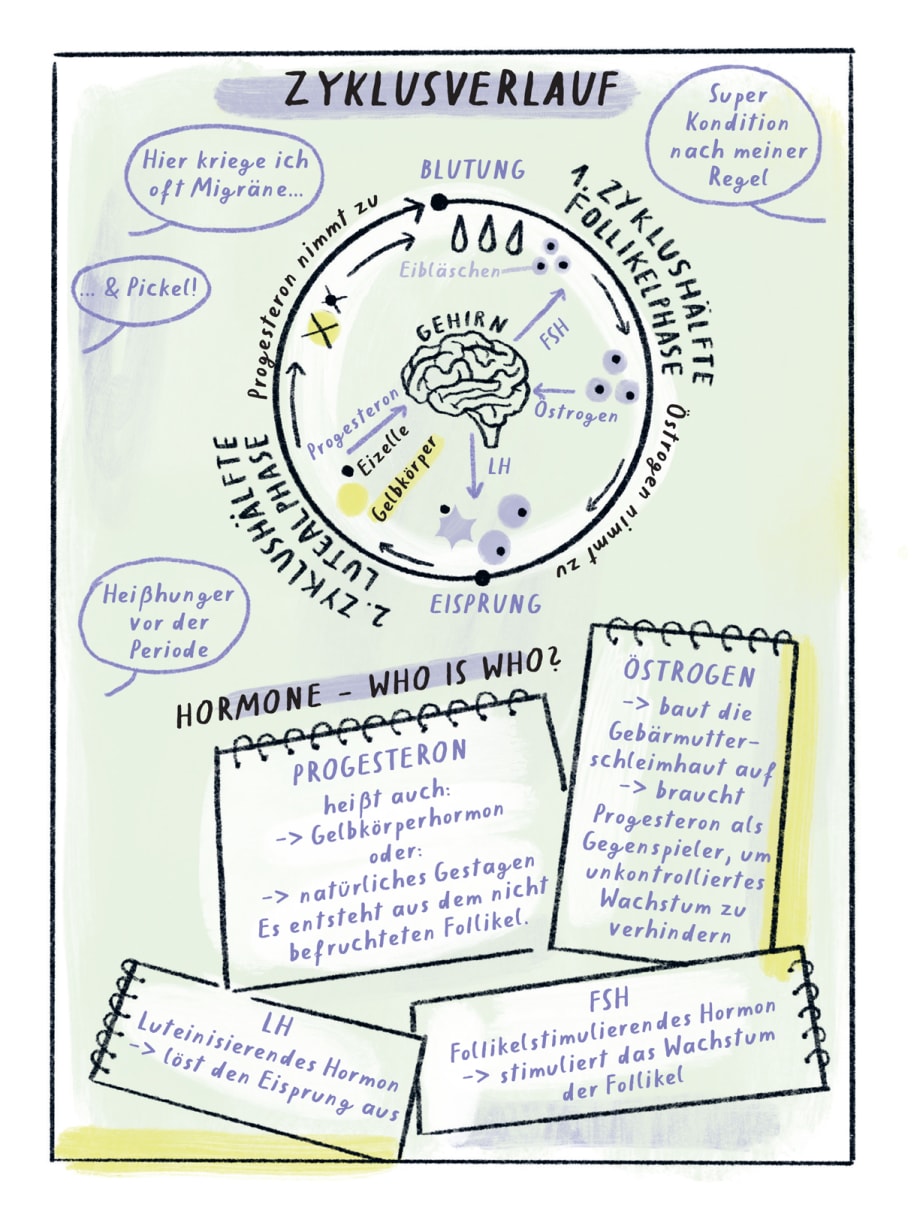 ZYKLUSVERLAUF
Super
Kondition
nach meiner
Regel
Hier kriege ich
oft Migräne...
... & Pickel!
BLUTUNG
1. ZYKLUSHÄLFTE
FOLLIKELPHASE
Progesteron nimmt zu
Eibläschen
GEHIRN
FSH
Östrogen
Östrogen nimmt zu
Progesteron
Eizelle
Gelbkörper
LH
2. ZYKLUSHÄLFTE
LUTEALPHASE
EISPRUNG
Heißhunger
vor der
Periode
HORMONE - WHO IS WHO?
PROGESTERON
heißt auch:
-> Gelbkörperhormon
oder:
-> natürliches Gestagen
Es entsteht aus dem nicht
befruchteten Follikel.
ÖSTROGEN
-> baut die
Gebärmutter-
schleimhaut auf
-> braucht
Progesteron als
Gegenspieler, um
unkontrolliertes
Wachstum zu
verhindern
LH
Luteinisierendes Hormon
-> löst den Eisprung aus
FSH
Follikelstimulierendes Hormon
-> stimuliert das Wachstum
der Follikel